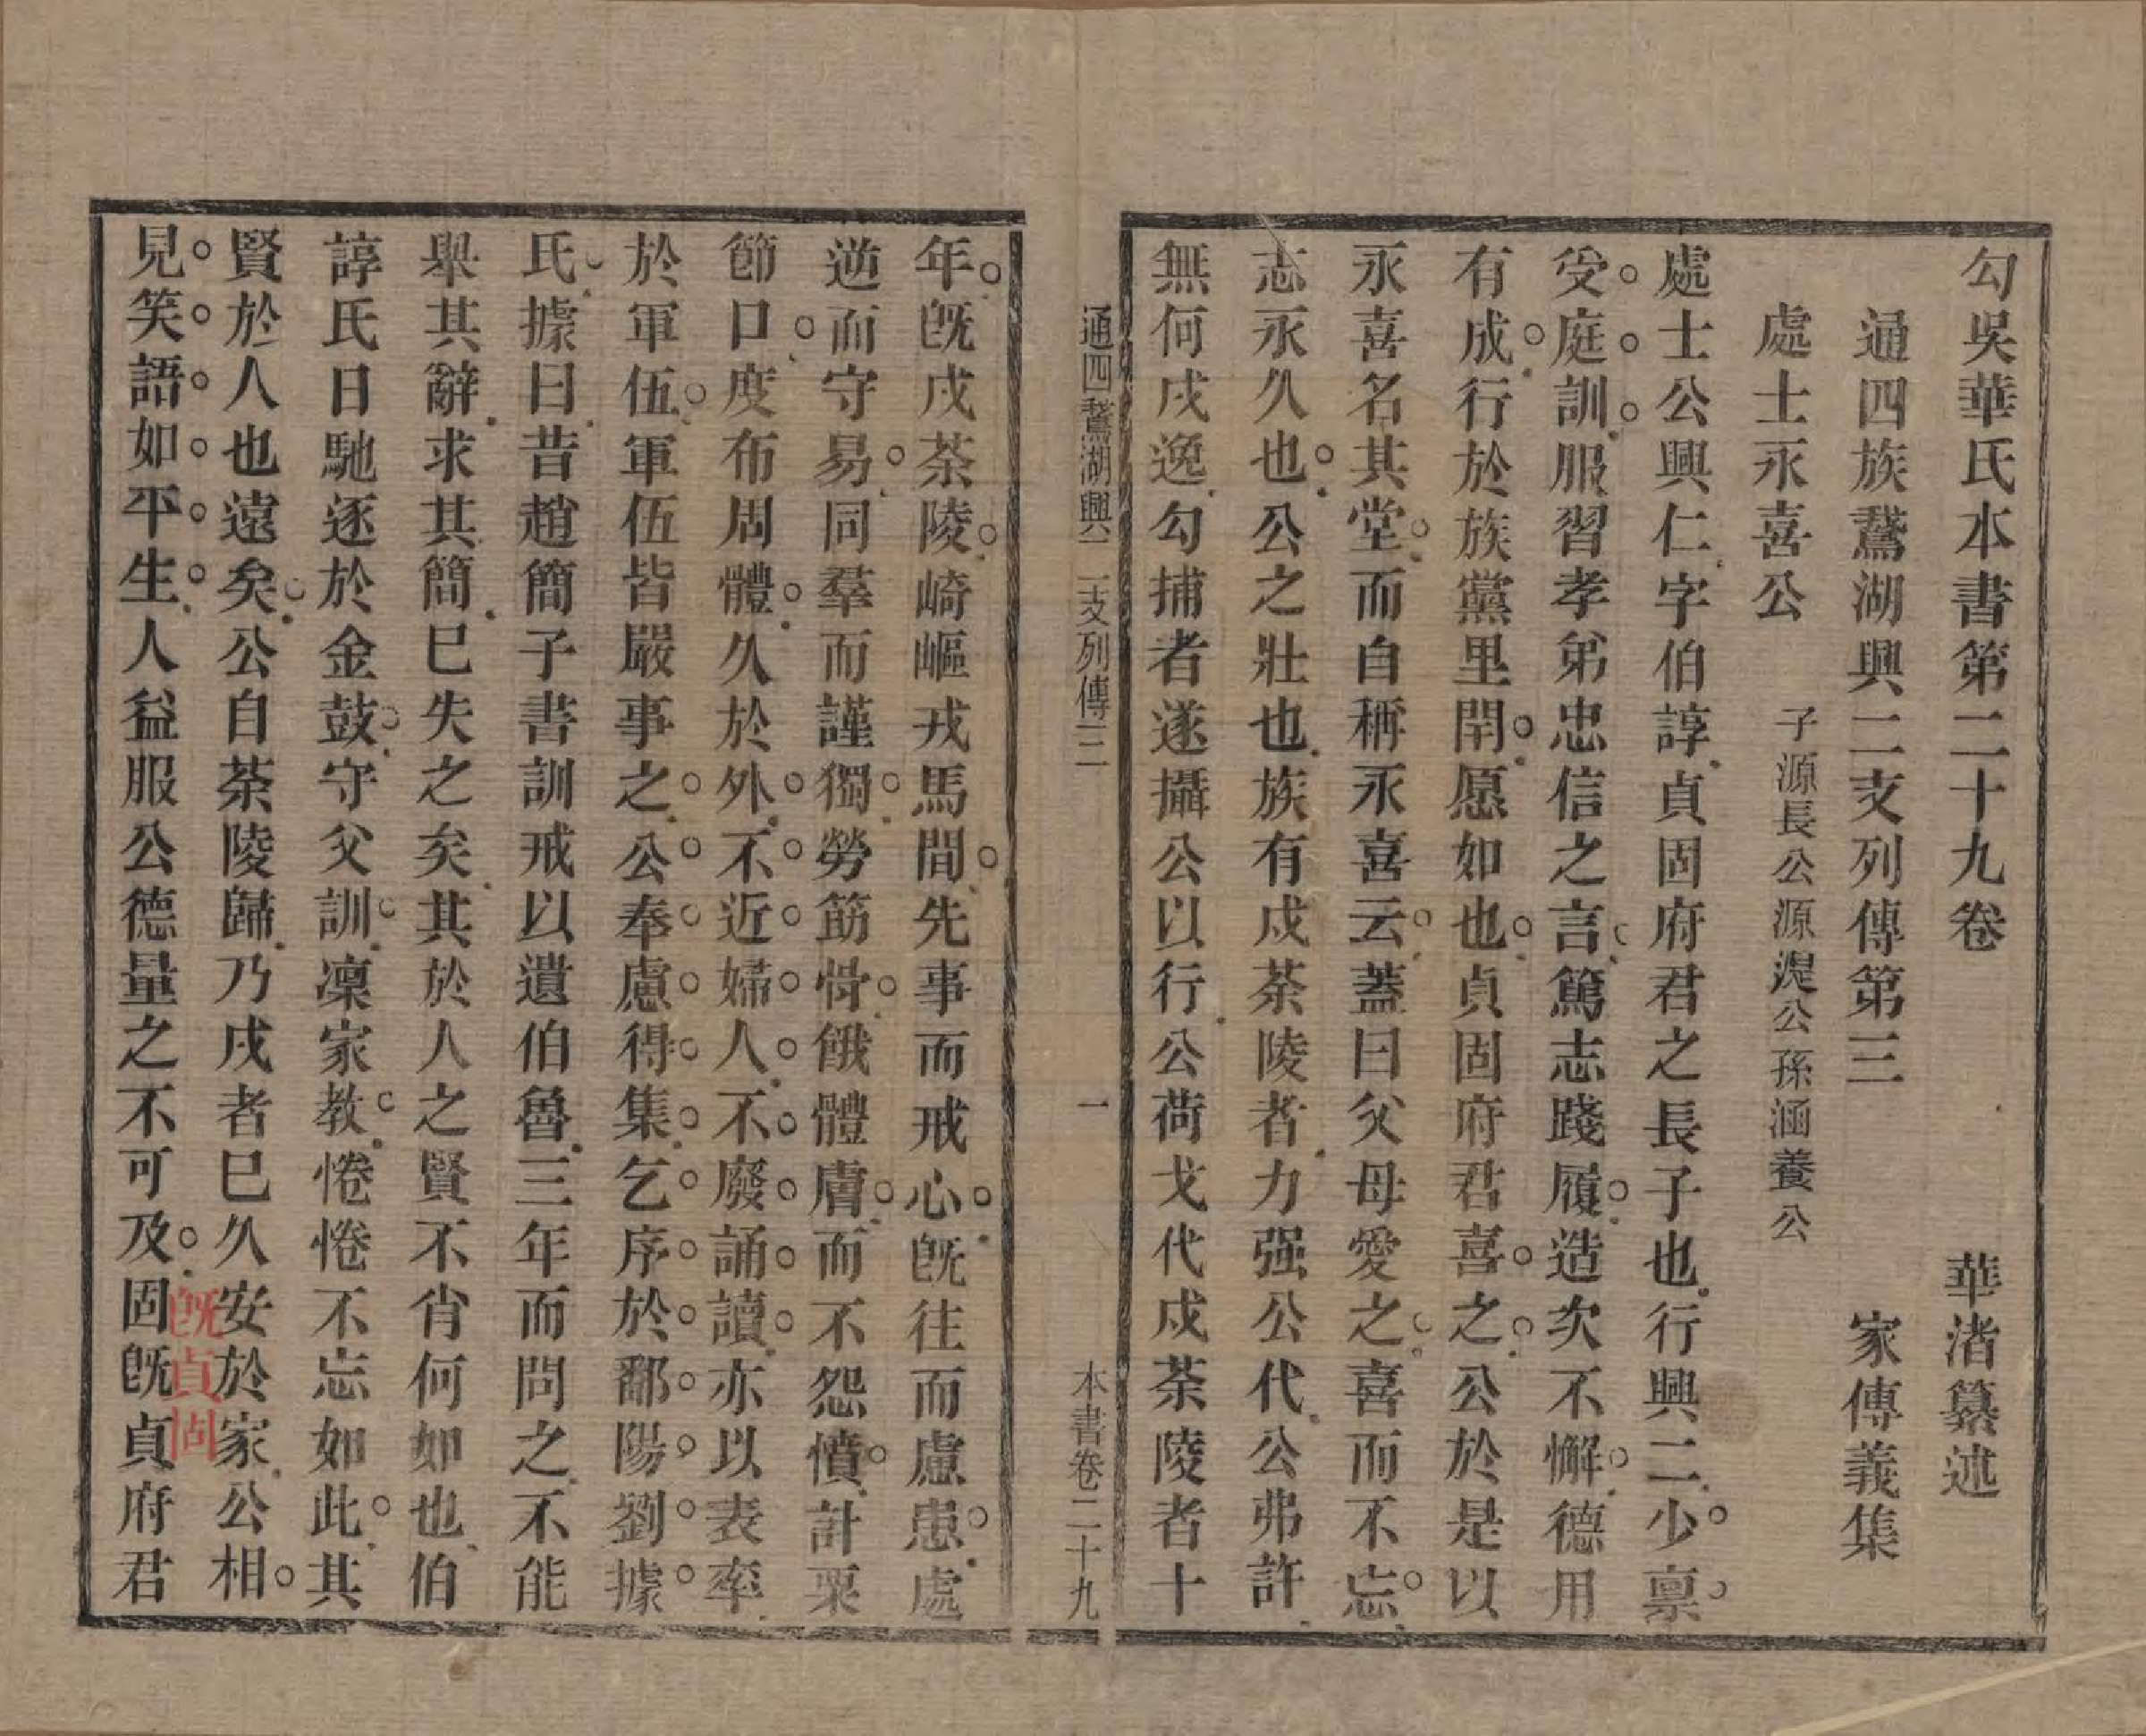 勾吳華氏本書第二十九卷　華渚纂述
通四族鵞湖興二支列傳第三　家傳義集
處士永喜公　子源長公源混公孫涵養公
處士公興仁字伯諄貞固府君之長子也行興二少禀
受庭訓服習孝弟忠信之言篤志踐履造次不懈德用
有成行於族黨里閈愿如也貞固府君喜之公於是以
永喜名其堂而自稱永喜云蓋曰父母愛之喜而不忘
志永久也公之壯也族有戍茶陵者力强公代公弗許
無何戍逸勾捕者遂攝公以行公荷戈代戍茶陵者十
通四鵞湖興二支列傳三　一　本書卷二十九
年既戍茶陵崎嶇戎馬間先事而戒心既往而慮患處
逆而守易同羣而謹獨勞筋骨餓體膚而不怨憤計粟
節口度布周體久於外不近婦人不廢誦讀亦以表率
於軍伍軍伍皆嚴事之公奉慮得集乞序於鄱陽劉據
氏據曰昔趙簡子書訓戒以遺伯魯三年而問之不能
舉其辭求其簡已失之矣其於人之賢不肖何如也伯
諄氏日馳逐於金鼓守父訓凜家教惓惓不忘如此其
賢於人也遠矣公自茶陵歸乃戍者已久安於家公相
見笑語如平生人益服公德量之不可及固既貞府君
既貞固